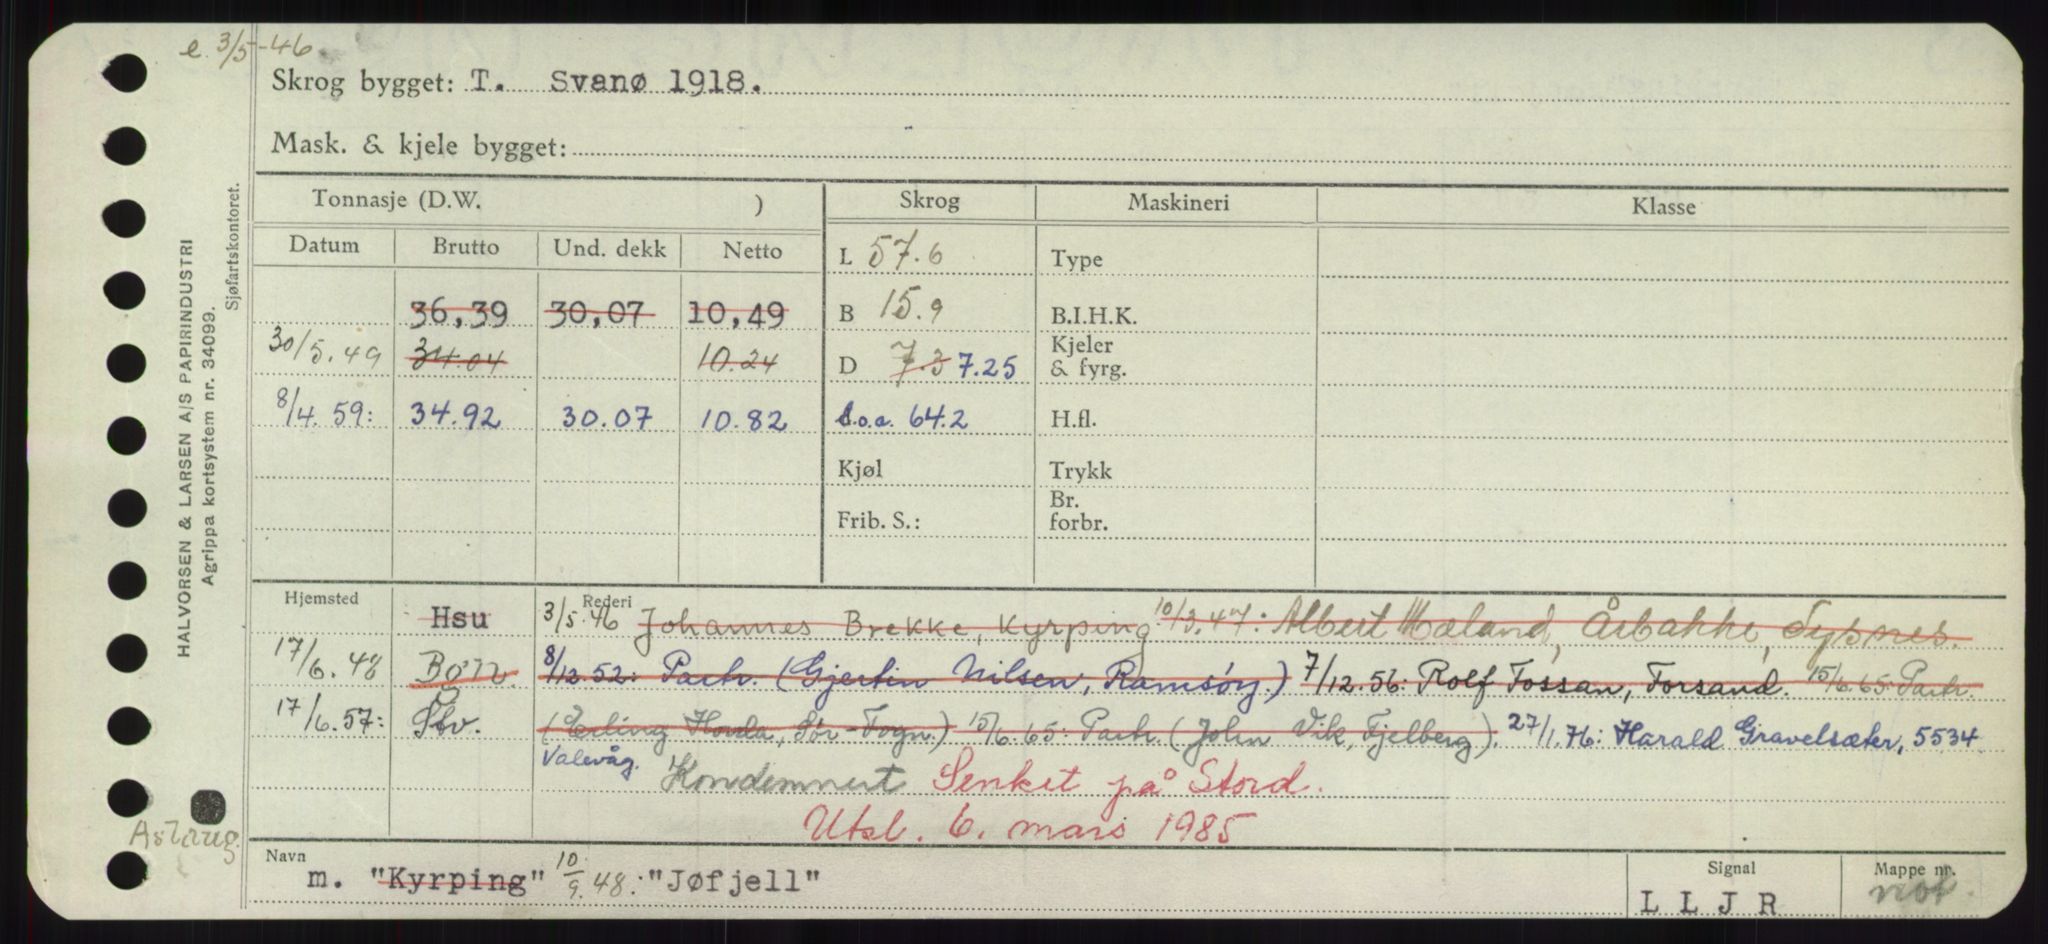 e. 3/5-46
Skrog bygget: T. Svanø 1918.
Mask. & kjele bygget:
HALVORSEN & LARSEN A/S PAPIRINDUSTRI
Agrippa kortsystem nr. 34099.
Sjøfartskontoret.
Tonnasje (D.W. ) Skrog Maskineri Klasse
Datum Brutto Und. dekk Netto L 57.6 Type
36,39 30,07 10,49 B 15.9 B.I.H.K.
30/5.49 34.04 10.24 D 7.3 7.25 Kjeler & fyrg.
8/4.59: 34.92 30.07 10.82 L.o.a. 64.2 H.fl.
Kjøl Trykk
Frib. S.: Br. forbr.
Hjemsted Rederi
Hsu 3/5.46 Johannes Brekke, Kyrping 10/3.47: Albert Mæland, Årbakke, Tysnes.
17/6.48 Børn. 8/12.52: Partr. (Gjertin Nilsen, Ramsöy.) 7/12.56: Rolf Fossan, Forsand. 15/6.65: Partr.
17/6.57: Stv. (Erling Honda, Sør-Fogn.) 15/6.65: Partr. (John Vik, Fjelberg). 27/1.76: Harald Gravelsæter, 5534
Valevåg. Kondemnert Senket på Stord.
Utsl. 6. mars 1985
Aslaug
Navn Signal Mappe nr.
m. "Kyrping" 10/9.48: "Jøfjell" L L J R mot.